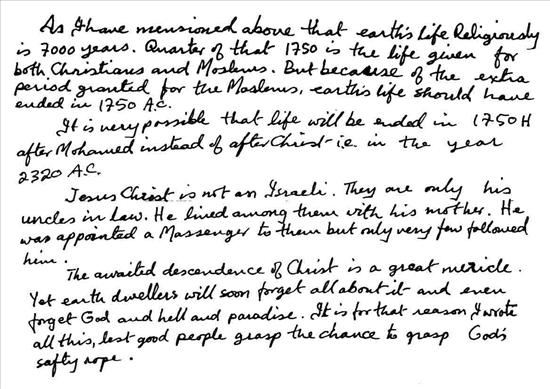 As I have mensioned above that earth's life Religiously
is 7000 years. Quarter of that 1750 is the life given for
both Christians and Moslems. But because of the extra
period granted for the Moslems, earth's life should have
ended in 1750 A.C.
It is very possible that life will be ended in 1750H
after Mohamed instead of after Christ - i.e. in the year
2320 A.C.
Jesus Christ is not an Israeli. They are only his
uncles in law. He lived among them with his mother. He
was appointed a Massenger to them but only very few followed
him.
The awaited descendence of Christ is a great mericle.
Yet earth dwellers will soon forget all about it and even
forget God and hell and paradise. It is for that reason I wrote
all this, lest good people grasp the chance to grasp God's
safty rope.